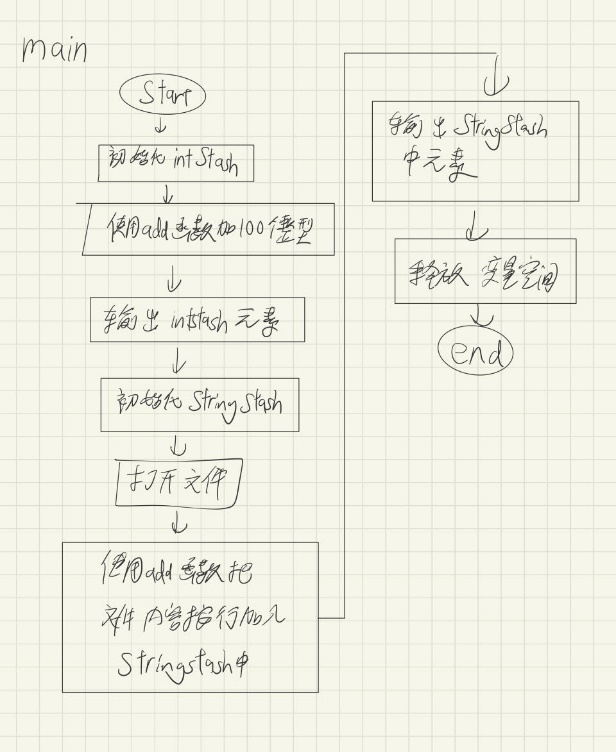 main
Start
初始化 int Stash
使用add函数加100个整型
输出 intstash 元素
初始化 String Stash
打开文件
使用add函数把
文件内容按行加入
Stringstash中
输出 StringStash
中元素
释放 变量空间
end